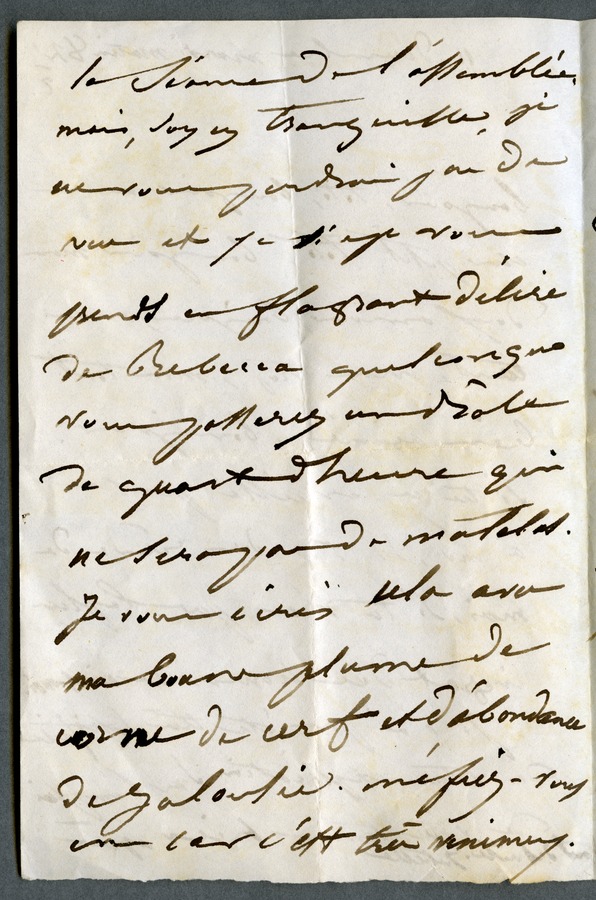 la Séance de l'assemblée.
mais, soyez tranquille, je
ne vous perdrai pas de
vue et je vous
prends en flagrant délire
de Rebecca quelconque
vous passerez un drôle
de quart d'heure qui
ne sera pas de matelas.
Je vous écris cela avec
ma bonne plume de
corne de cerf et d'abondance
de jalousie. méfiez-vous
en car c'est très venimeux.